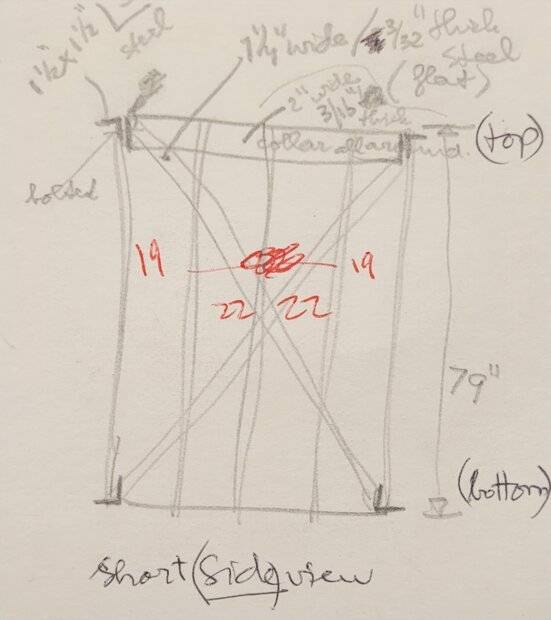 1½" x 1½"
steel
1¼" wide / 3/32" thick
steel
(flat)
2" wide
3/16"
thick
(top)
collar all around.
bolted
19
19
22
22
79"
(bottom)
short (side) view